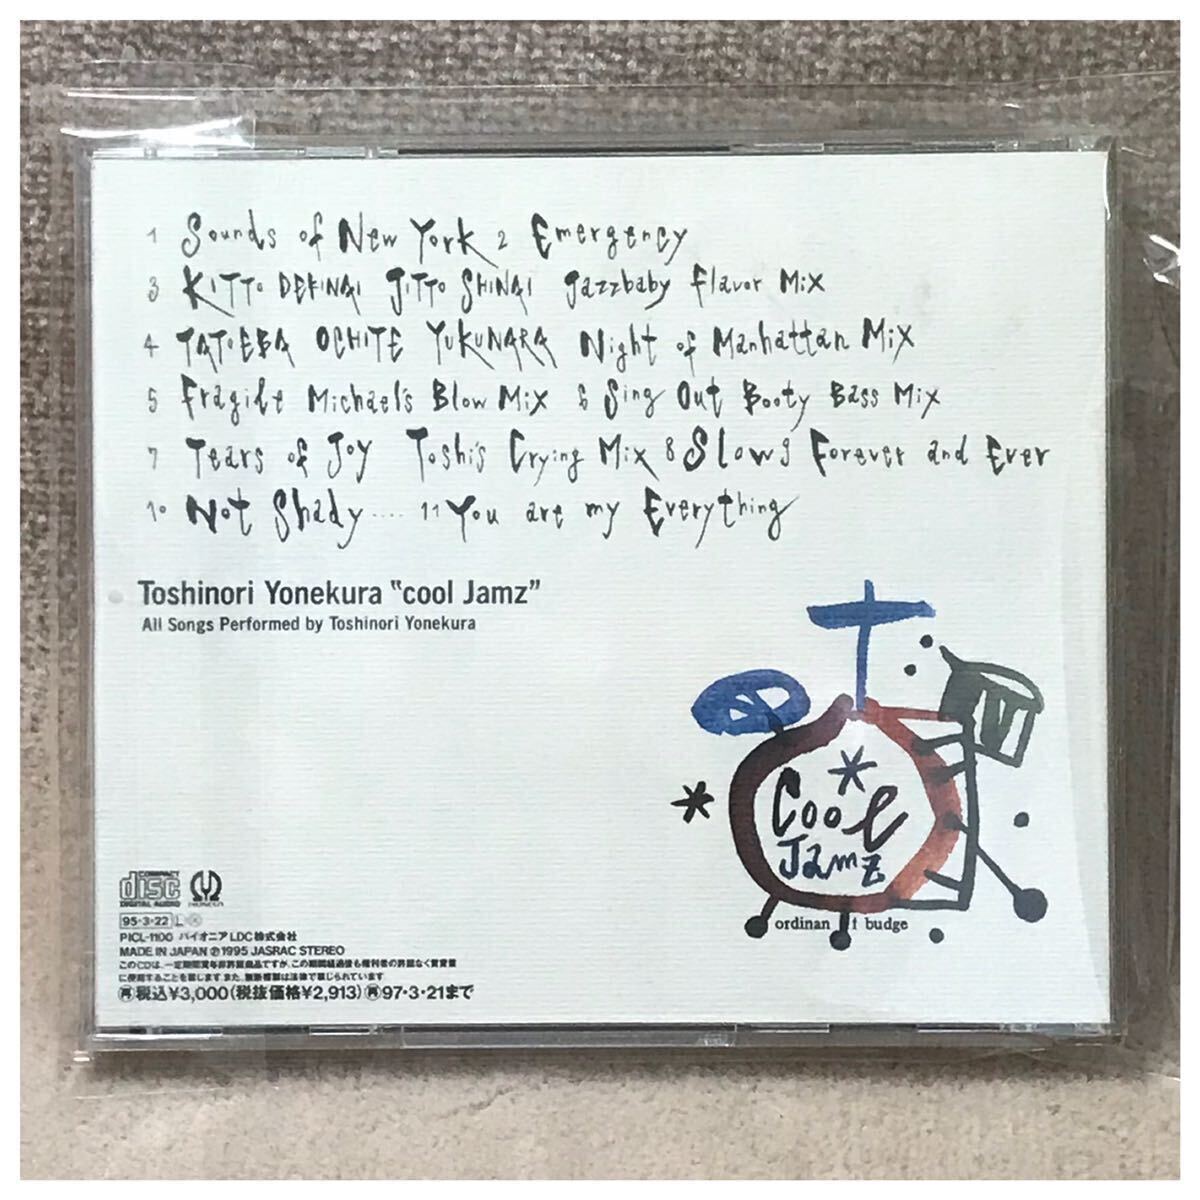 1 Sounds of New York 2 Emergency
3 KITTO DEKINAI JITTO SHINAI Jazzbaby Flavor Mix
4 TATOEBA OCHITE YUKUNARA Night of Manhattan Mix
5 Fragile Michael's Blow Mix 6 Sing Out Booty Bass Mix
7 Tears of Joy Toshi's Crying Mix 8 Slow 9 Forever and Ever
10 Not Shady.... 11 You are my Everything
Toshinori Yonekura "cool Jamz"
All Songs Performed by Toshinori Yonekura
Cool
Jamz
ordinan f budge
COMPACT
disc
DIGITAL AUDIO
PIONEER
95・3・22 L
PICL-1100 パイオニアLDC株式会社
MADE IN JAPAN Ⓟ1995 JASRAC STEREO
このCDは、一定期間貸与非許諾商品ですが、この期間経過後も権利者の許諾なく賃貸業
に使用することを禁じます。また、無断複製は法律で禁じられています。
再税込¥3,000(税抜価格¥2,913)再97・3・21まで